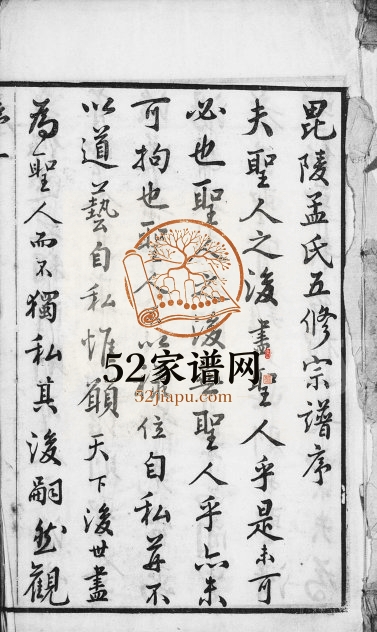 毘陵孟氏五修宗譜序
夫聖人之後盡聖人乎是未可
必也聖人之後非聖人乎亦未
可拘也聖人以位自私莫不
以道藝自私惟願天下後世盡
為聖人而不獨私其後嗣然觀
52家谱网
52jiapu.com